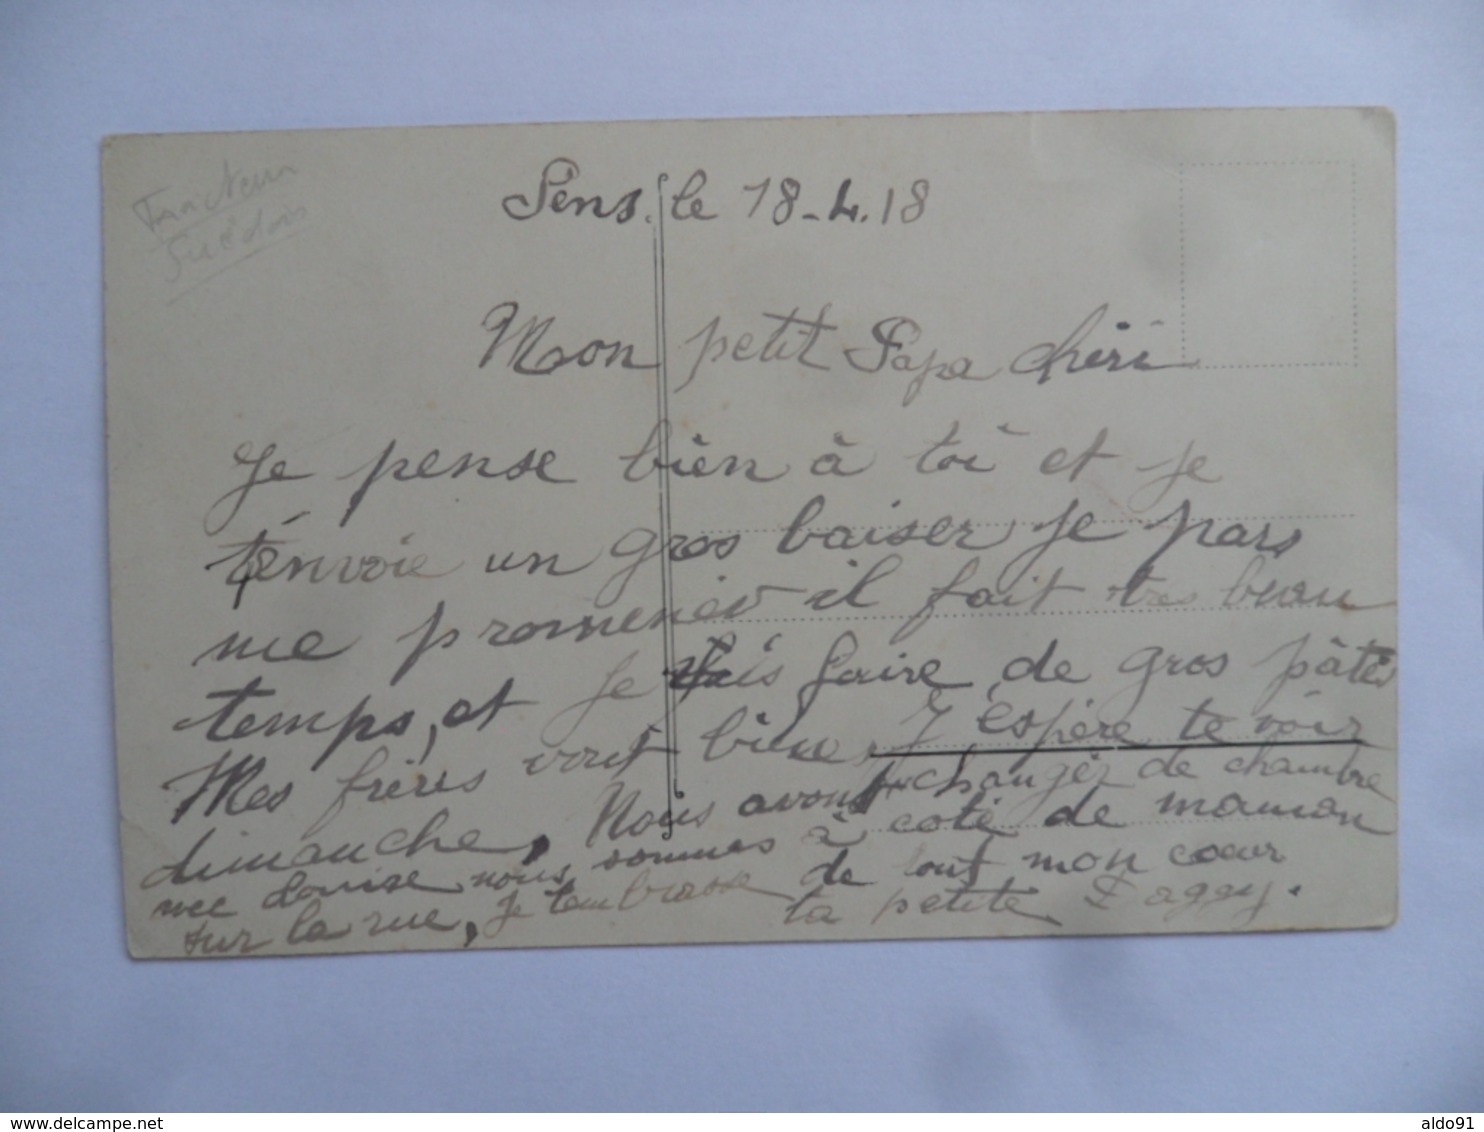 Tracteur
Suédois
Sens. le 18-4.18
Mon petit Papa chéri
Je pense bien à toi et je
t'envoie un gros baiser je pars
me promener il fait très beau
temps, et je vais faire de gros pâtés
Mes frères vont bien, J'espère te voir
dimanche, Nous avons changer de chambre
mee Louise nous sommes à coté de maman
sur la rue, je t'embrasse de tout mon coeur
ta petite Daggy.
aldo91